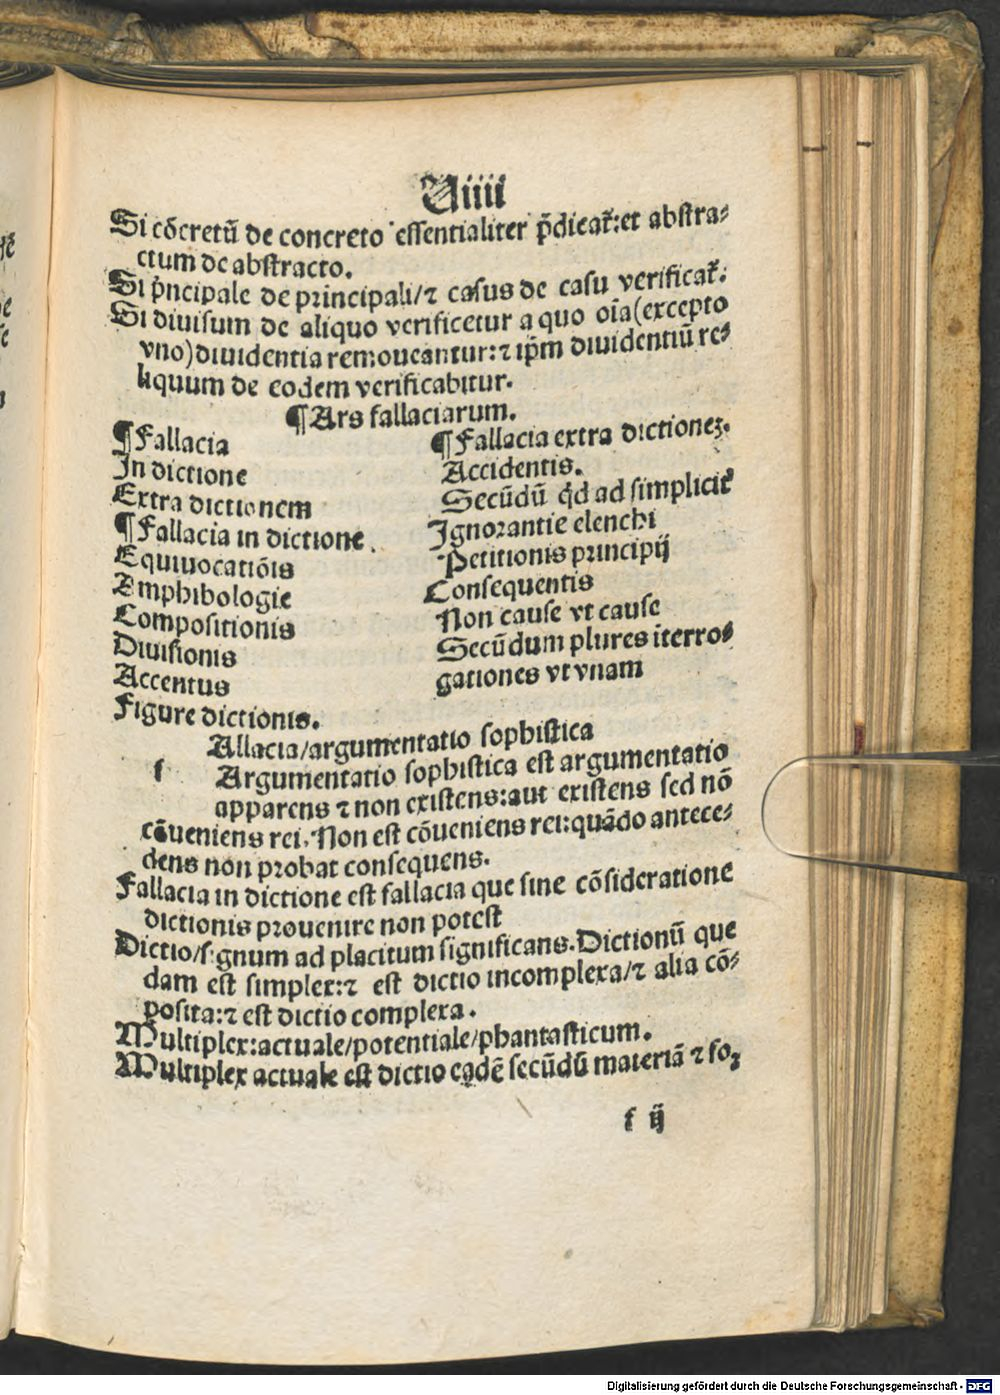 Uiiii
Si cõcretũ de concreto essentialiter p̃dicat̃:et abstra⸗
ctum de abstracto.
Si p̃ncipale de principali/⁊ casus de casu verificat̃.
Si diuisum de aliquo verificetur a quo oĩa(excepto
vno)diuidentia remoueantur:⁊ ip̃m diuidentiũ re⸗
liquum de eodem verificabitur.
¶Ars fallaciarum.
¶Fallacia
In dictione
Extra dictionem
¶Fallacia in dictione.
Equiuocatiõis
Amphibologie
Compositionis
Diuisionis
Accentus
Figure dictionis.
¶Fallacia extra dictioneꝫ.
Accidentis.
Secũdũ q̃d ad simplicit̃
Ignorantie elenchi
Petitionis principij
Consequentis
Non cause vt cause
Secũdum plures iterro⸗
gationes vt vnam
Allacia/argumentatio sophistica
f Argumentatio sophistica est argumentatio
apparens ⁊ non existens:aut existens sed nõ
cõueniens rei. Non est cõueniens rei:quãdo antece⸗
dens non probat consequens.
Fallacia in dictione est fallacia que sine cõsideratione
dictionis prouenire non potest
Dictio/signum ad placitum significans.Dictionũ que
dam est simplex:⁊ est dictio incomplexa/⁊ alia cõ⸗
posita:⁊ est dictio complexa.
Multiplex:actuale/potentiale/phantasticum.
Multiplex actuale est dictio eadẽ secũdũ materiã ⁊ foꝛ
f ij
Digitalisierung gefördert durch die Deutsche Forschungsgemeinschaft - DFG